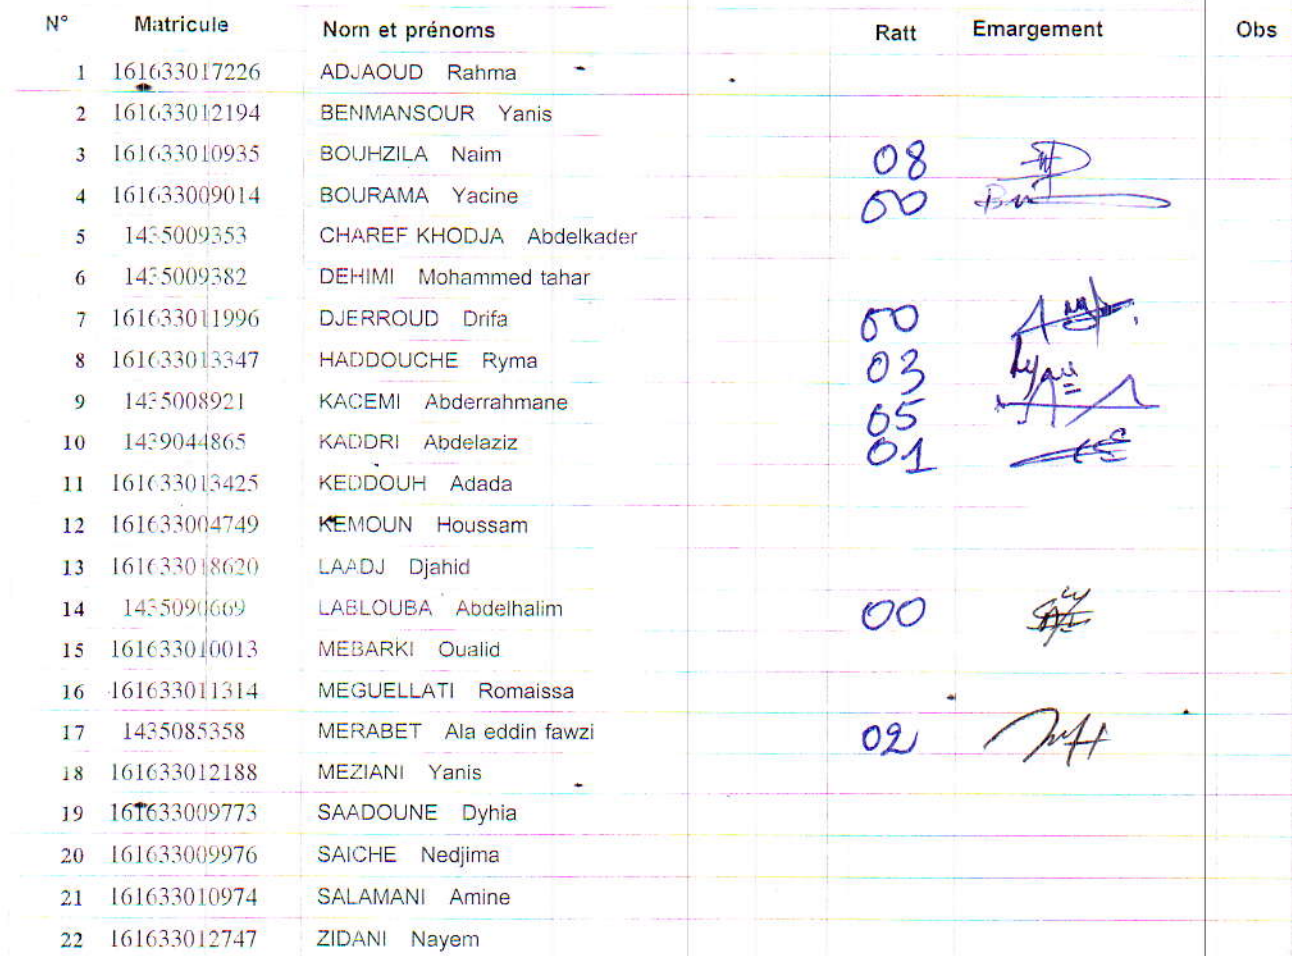 N° Matricule Nom et prénoms Ratt Emargement Obs
1 161633017226 ADJAOUD Rahma
2 161633012194 BENMANSOUR Yanis
3 161633010935 BOUHZILA Naim 08
4 161633009014 BOURAMA Yacine 00
5 1435009353 CHAREF KHODJA Abdelkader
6 1435009382 DEHIMI Mohammed tahar
7 161633011996 DJERROUD Drifa 00
8 161633013347 HADDOUCHE Ryma 03
9 1435008921 KACEMI Abderrahmane 05
10 1439044865 KADDRI Abdelaziz 01
11 161633013425 KEDDOUH Adada
12 161633004749 KEMOUN Houssam
13 161633018620 LAADJ Djahid
14 1435090669 LABLOUBA Abdelhalim 00
15 161633010013 MEBARKI Oualid
16 161633011314 MEGUELLATI Romaissa
17 1435085358 MERABET Ala eddin fawzi 02
18 161633012188 MEZIANI Yanis
19 161633009773 SAADOUNE Dyhia
20 161633009976 SAICHE Nedjima
21 161633010974 SALAMANI Amine
22 161633012747 ZIDANI Nayem